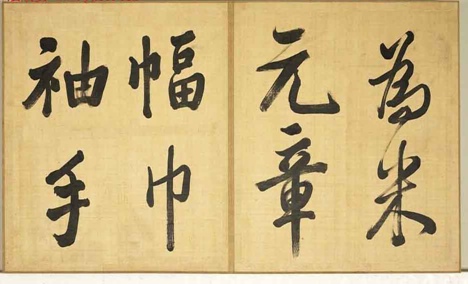 為米
元章
幅巾
袖手